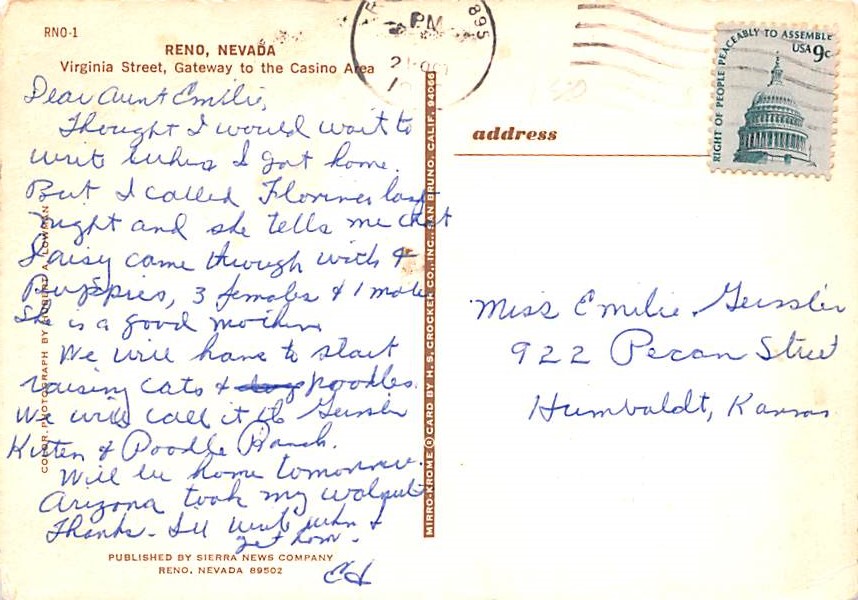 RNO-1
RENO, NEVADA
Virginia Street, Gateway to the Casino Area
Dear Aunt Emilie,
Thought I would wait to
write when I got home.
But I called Florines last
night and she tells me that
Daisy came through with 4
Puppies, 3 females & 1 male
She is a good mother
We will have to start
raising cats & dogs poodles.
We will call it the Geissler
Kitten & Poodle Ranch.
Will be home tomorrow.
Arizona took my walnuts
Thanks. I'll write when I
get home.
PUBLISHED BY SIERRA NEWS COMPANY
RENO, NEVADA 89502
COLOR PHOTOGRAPH BY ROBERT A. LOWMAN
MIRRO-KROME ® CARD BY H. S. CROCKER CO., INC., SAN BRUNO, CALIF. 94066
895
PM
21 OCT
RIGHT OF PEOPLE PEACEABLY TO ASSEMBLE
USA 9c
address
Miss Emilie Geissler
922 Pecan Street
Humboldt, Kansas